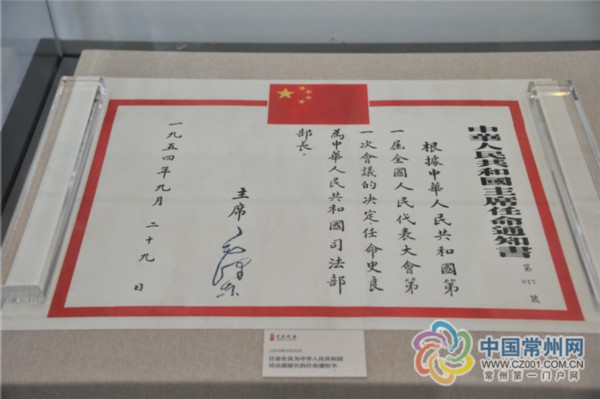 中華人民共和國主席任命通知書
第017號
根據中華人民共和國第
一屆全國人民代表大會第
一次會議的决定，任命史良
為中華人民共和國司法部
部長。
主席 毛澤東
一九五四年九月二十九日
任命史良为中华人民共和国
司法部部长的任命通知书
中国常州网
WWW.CZ001.COM.CN
常州第一门户网